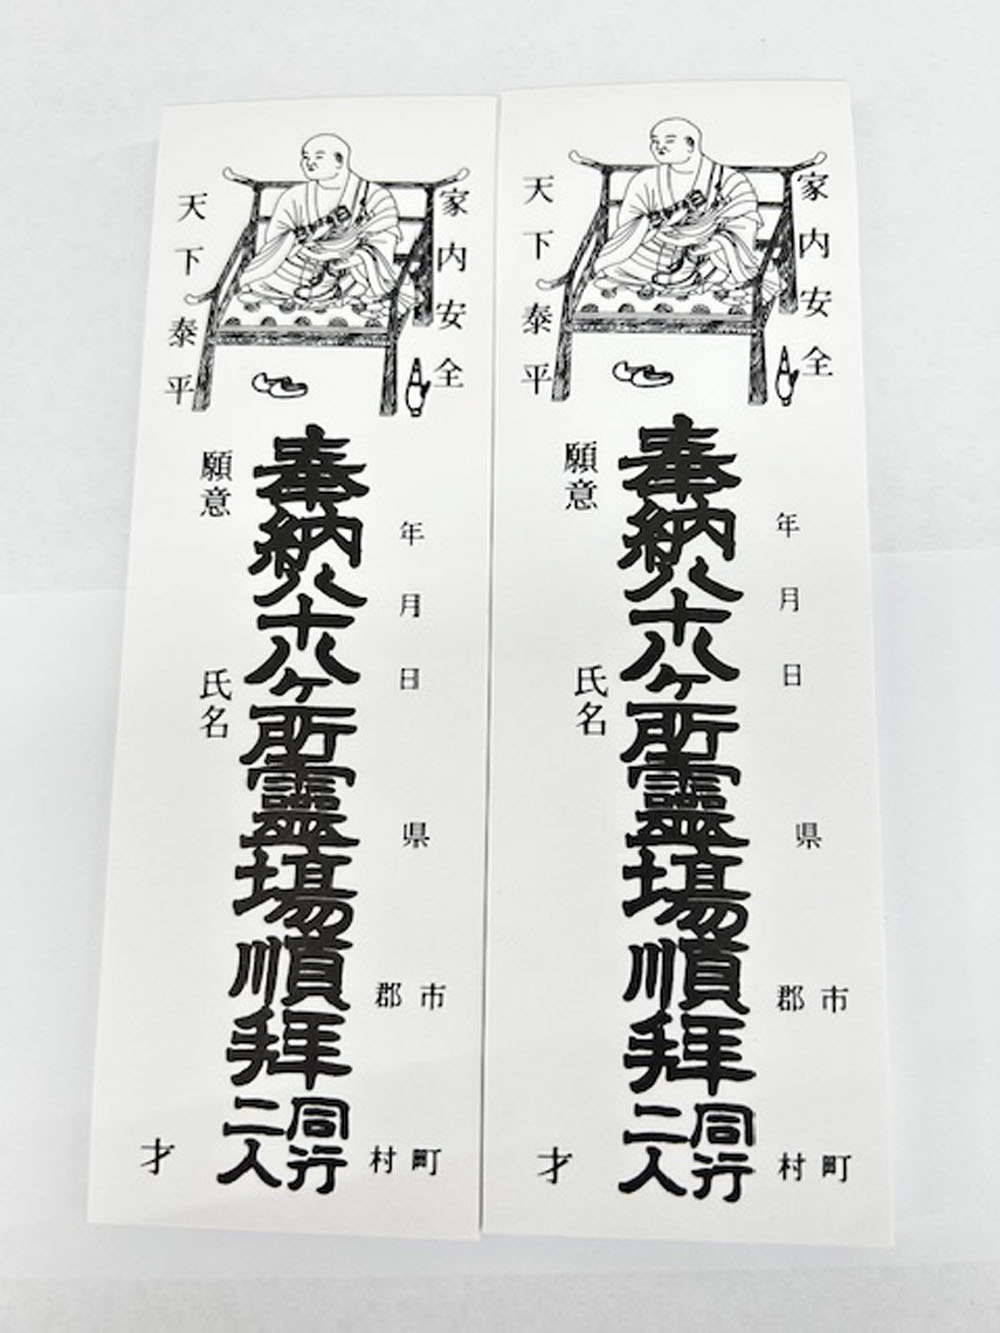 家内安全
天下泰平
年月日
県
市
郡
町
村
奉納八十八ヶ所霊場順拝
同行
二人
願意
氏名
才
家内安全
天下泰平
年月日
県
市
郡
町
村
奉納八十八ヶ所霊場順拝
同行
二人
願意
氏名
才